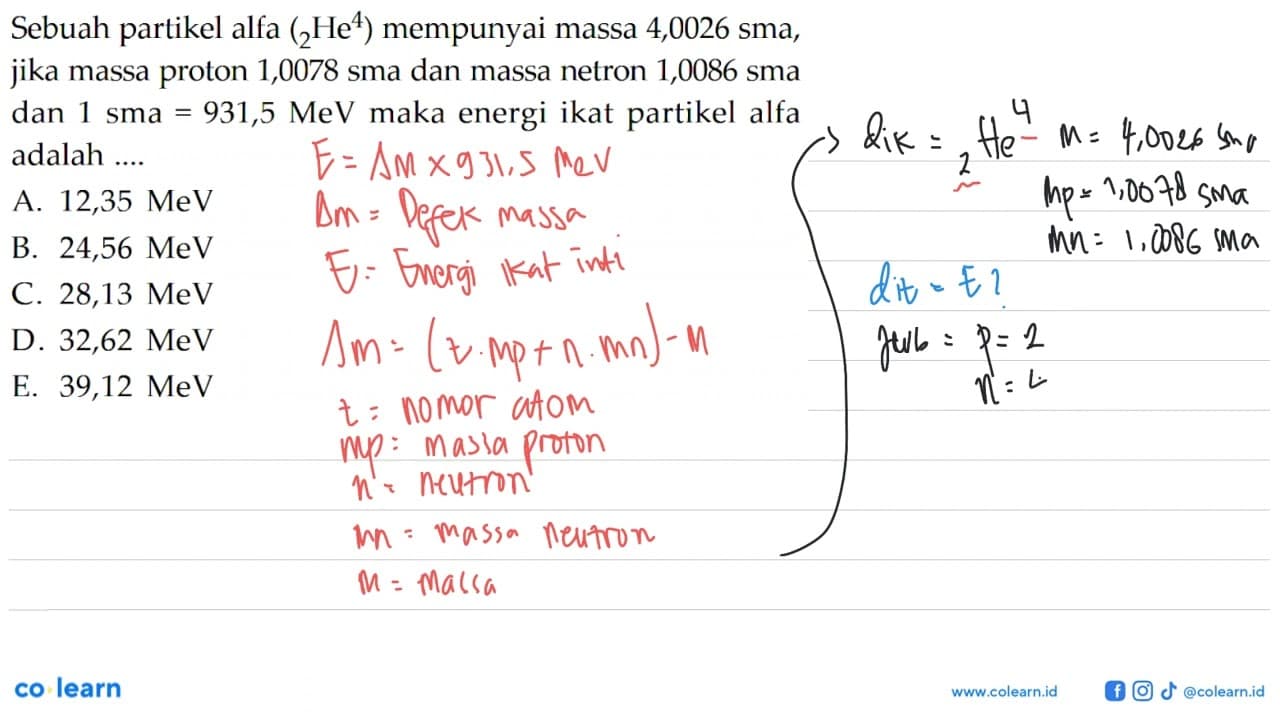 Sebuah partikel alfa (₂He⁴) mempunyai massa 4,0026 sma,
jika massa proton 1,0078 sma dan massa netron 1,0086 sma
dan 1 sma = 931,5 MeV maka energi ikat partikel alfa
adalah ....
A. 12,35 MeV
B. 24,56 MeV
C. 28,13 MeV
D. 32,62 MeV
E. 39,12 MeV
E = Δm x 931,5 MeV
Δm = Defek massa
E = Energi ikat inti
Δm = (z.mp + n.mn) - M
z = nomor atom
mp = massa proton
n = neutron
mn = massa neutron
M = Massa
dik = ₂He⁴ - M = 4,0026 sma
mp = 1,0078 sma
mn = 1,0086 sma
dit = E?
jwb = p = 2
n = 4
co learn
www.colearn.id
@colearn.id